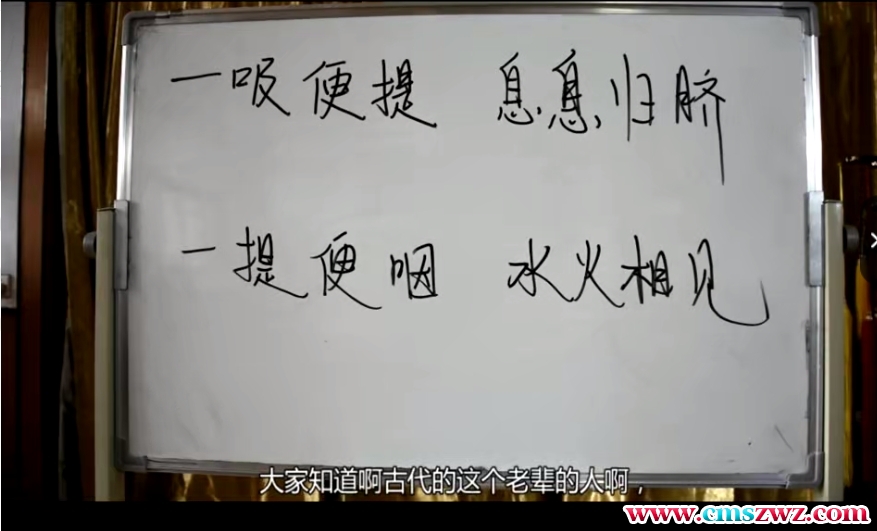 一吸便提 息息归脐
一提便咽 水火相见
大家知道啊古代的这个老辈的人啊，
www.cmszwz.com